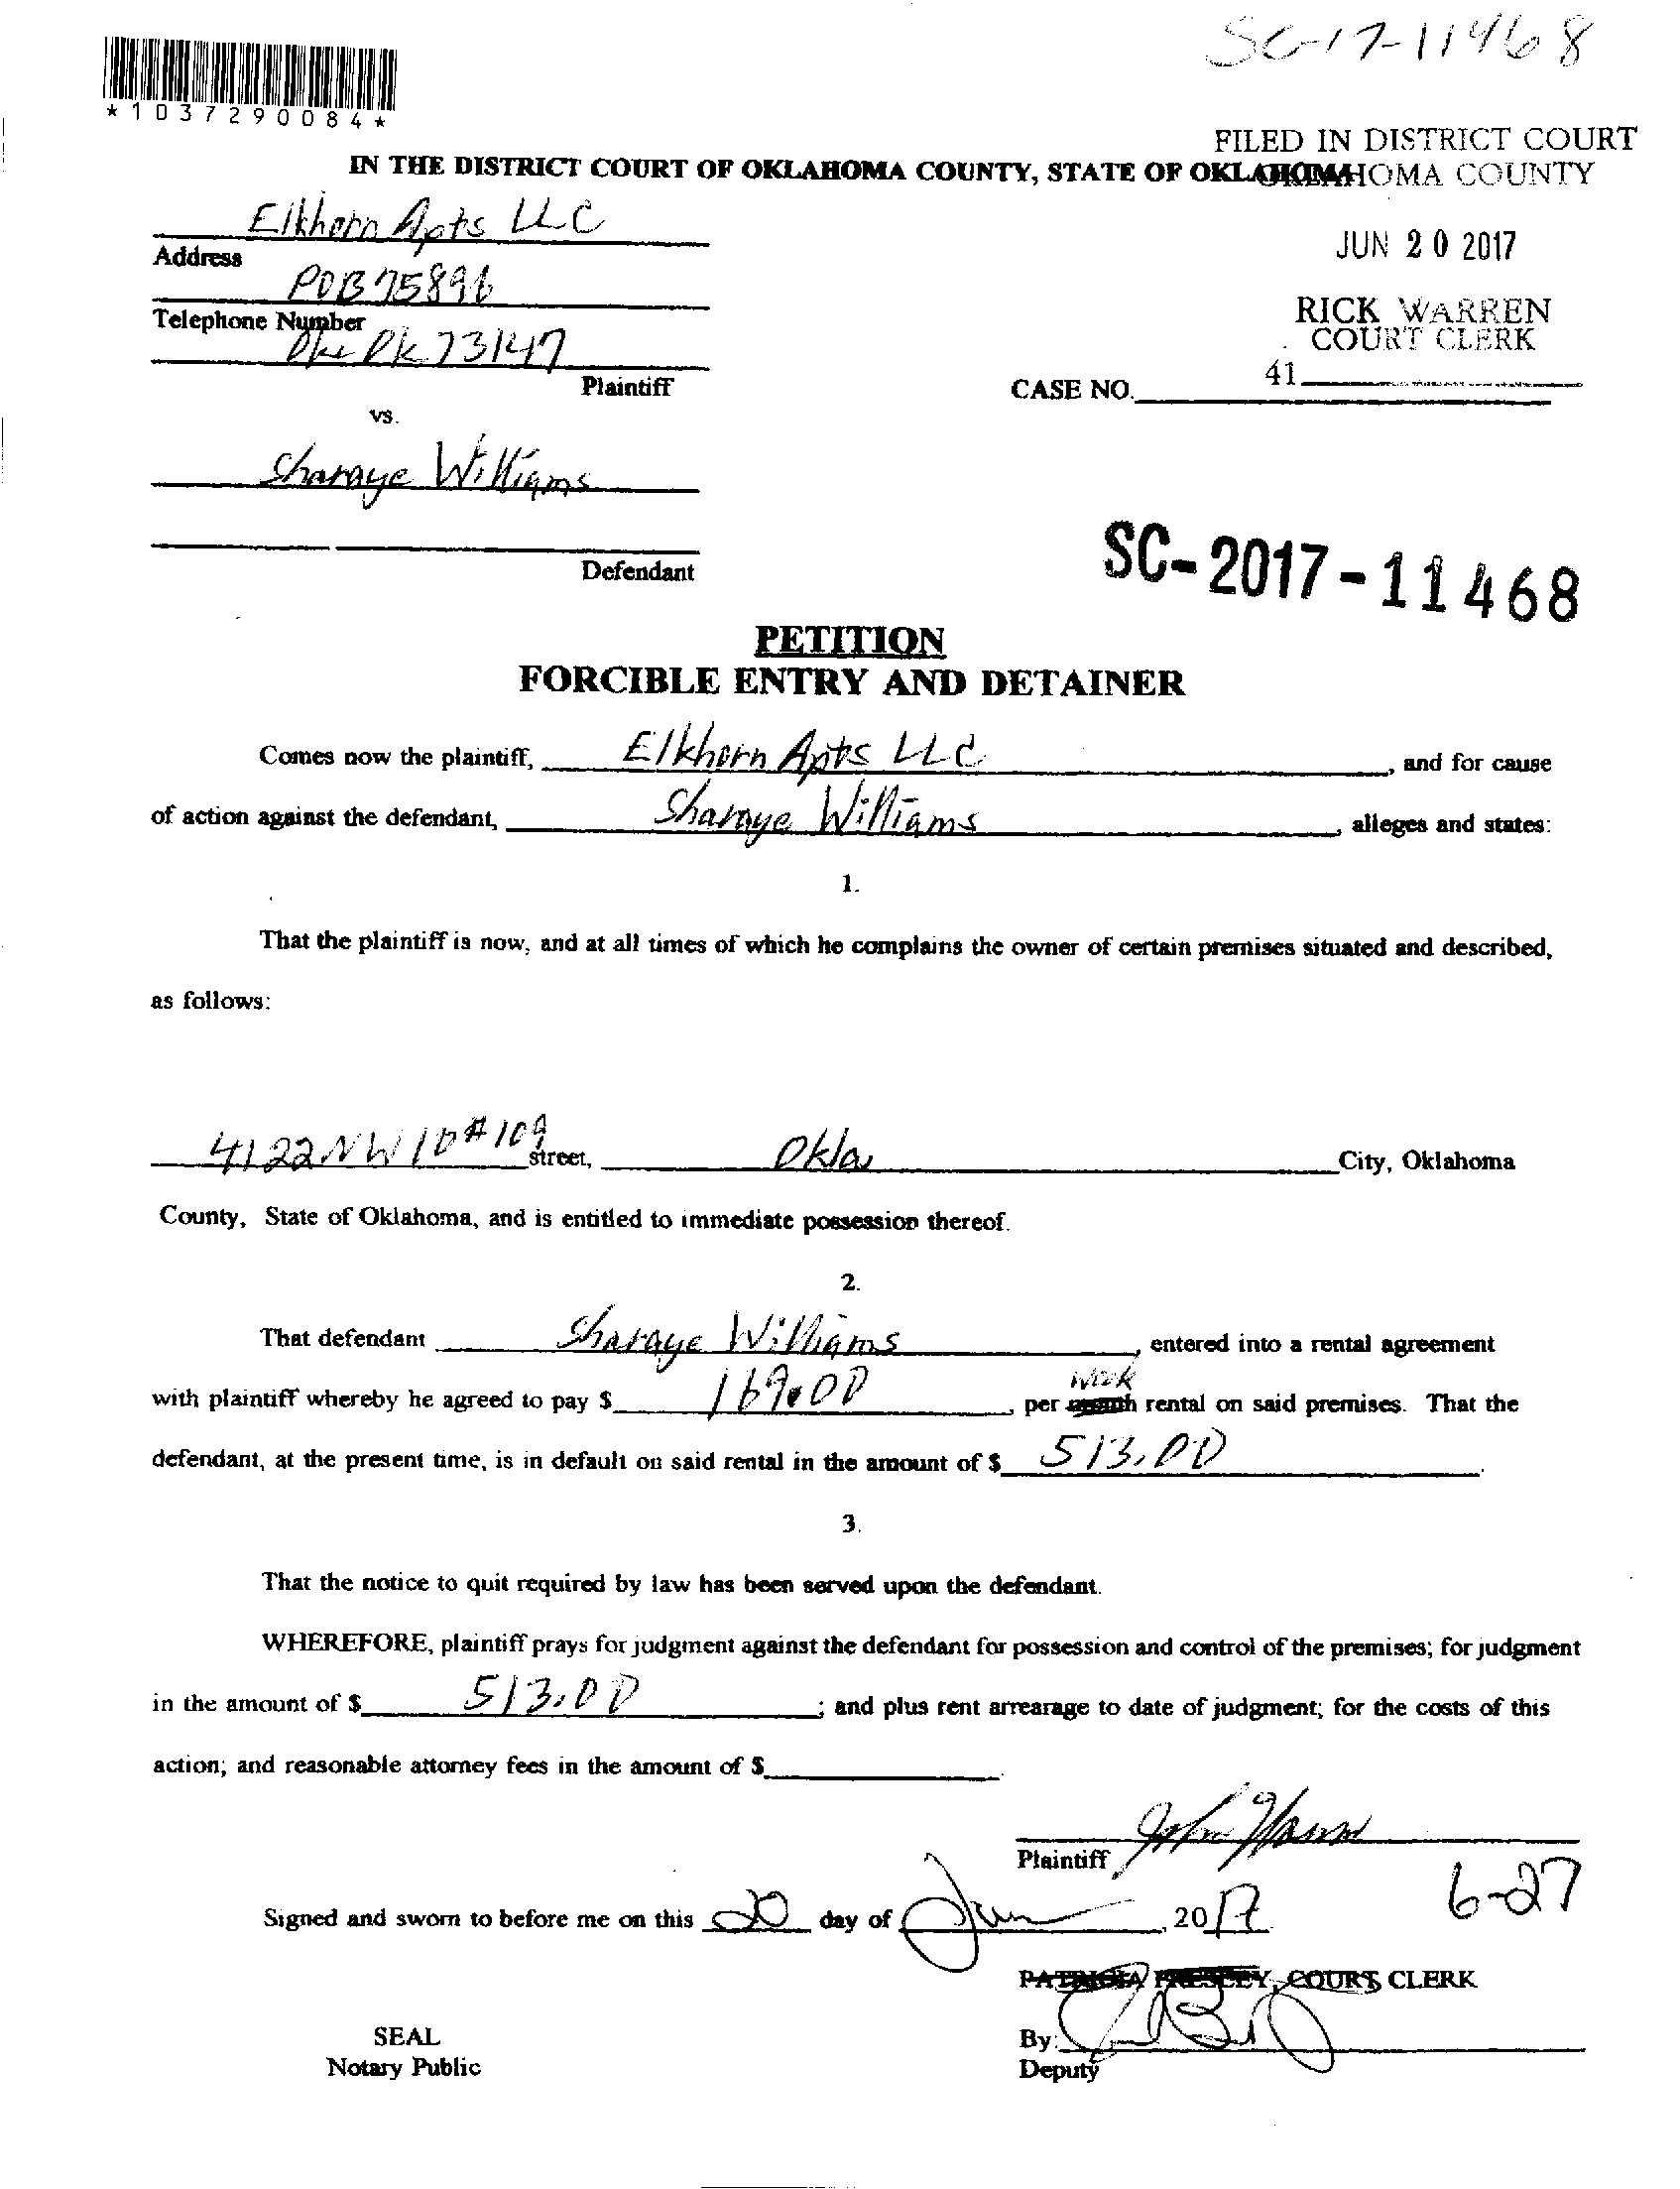 SC-17-11468
*1037290084*
FILED IN DISTRICT COURT
IN THE DISTRICT COURT OF OKLAHOMA COUNTY, STATE OF OKLAHOMA
OKLAHOMA COUNTY
Elkhorn Apts LLC
JUN 20 2017
Address
POB 75896
RICK WARREN
COURT CLERK
Telephone Number
Ok 73147
41
Plaintiff
CASE NO.
vs.
Sharaye Williams
Defendant
SC-2017-11468
PETITION
FORCIBLE ENTRY AND DETAINER
Comes now the plaintiff, Elkhorn Apts LLC, and for cause
of action against the defendant, Sharaye Williams, alleges and states:
1.
That the plaintiff is now, and at all times of which he complains the owner of certain premises situated and described,
as follows:
4122 NW 10 #109 street, Okla City, Oklahoma
County, State of Oklahoma, and is entitled to immediate possession thereof.
2.
That defendant Sharaye Williams, entered into a rental agreement
with plaintiff whereby he agreed to pay $ 169.00, per month week rental on said premises. That the
defendant, at the present time, is in default on said rental in the amount of $ 513.00.
3.
That the notice to quit required by law has been served upon the defendant.
WHEREFORE, plaintiff prays for judgment against the defendant for possession and control of the premises; for judgment
in the amount of $ 513.00; and plus rent arrearage to date of judgment; for the costs of this
action; and reasonable attorney fees in the amount of $
Plaintiff
6-27
Signed and sworn to before me on this 20 day of Jun, 2017
PATRICIA PRESLEY, COURT CLERK
SEAL
By:
Notary Public
Deputy